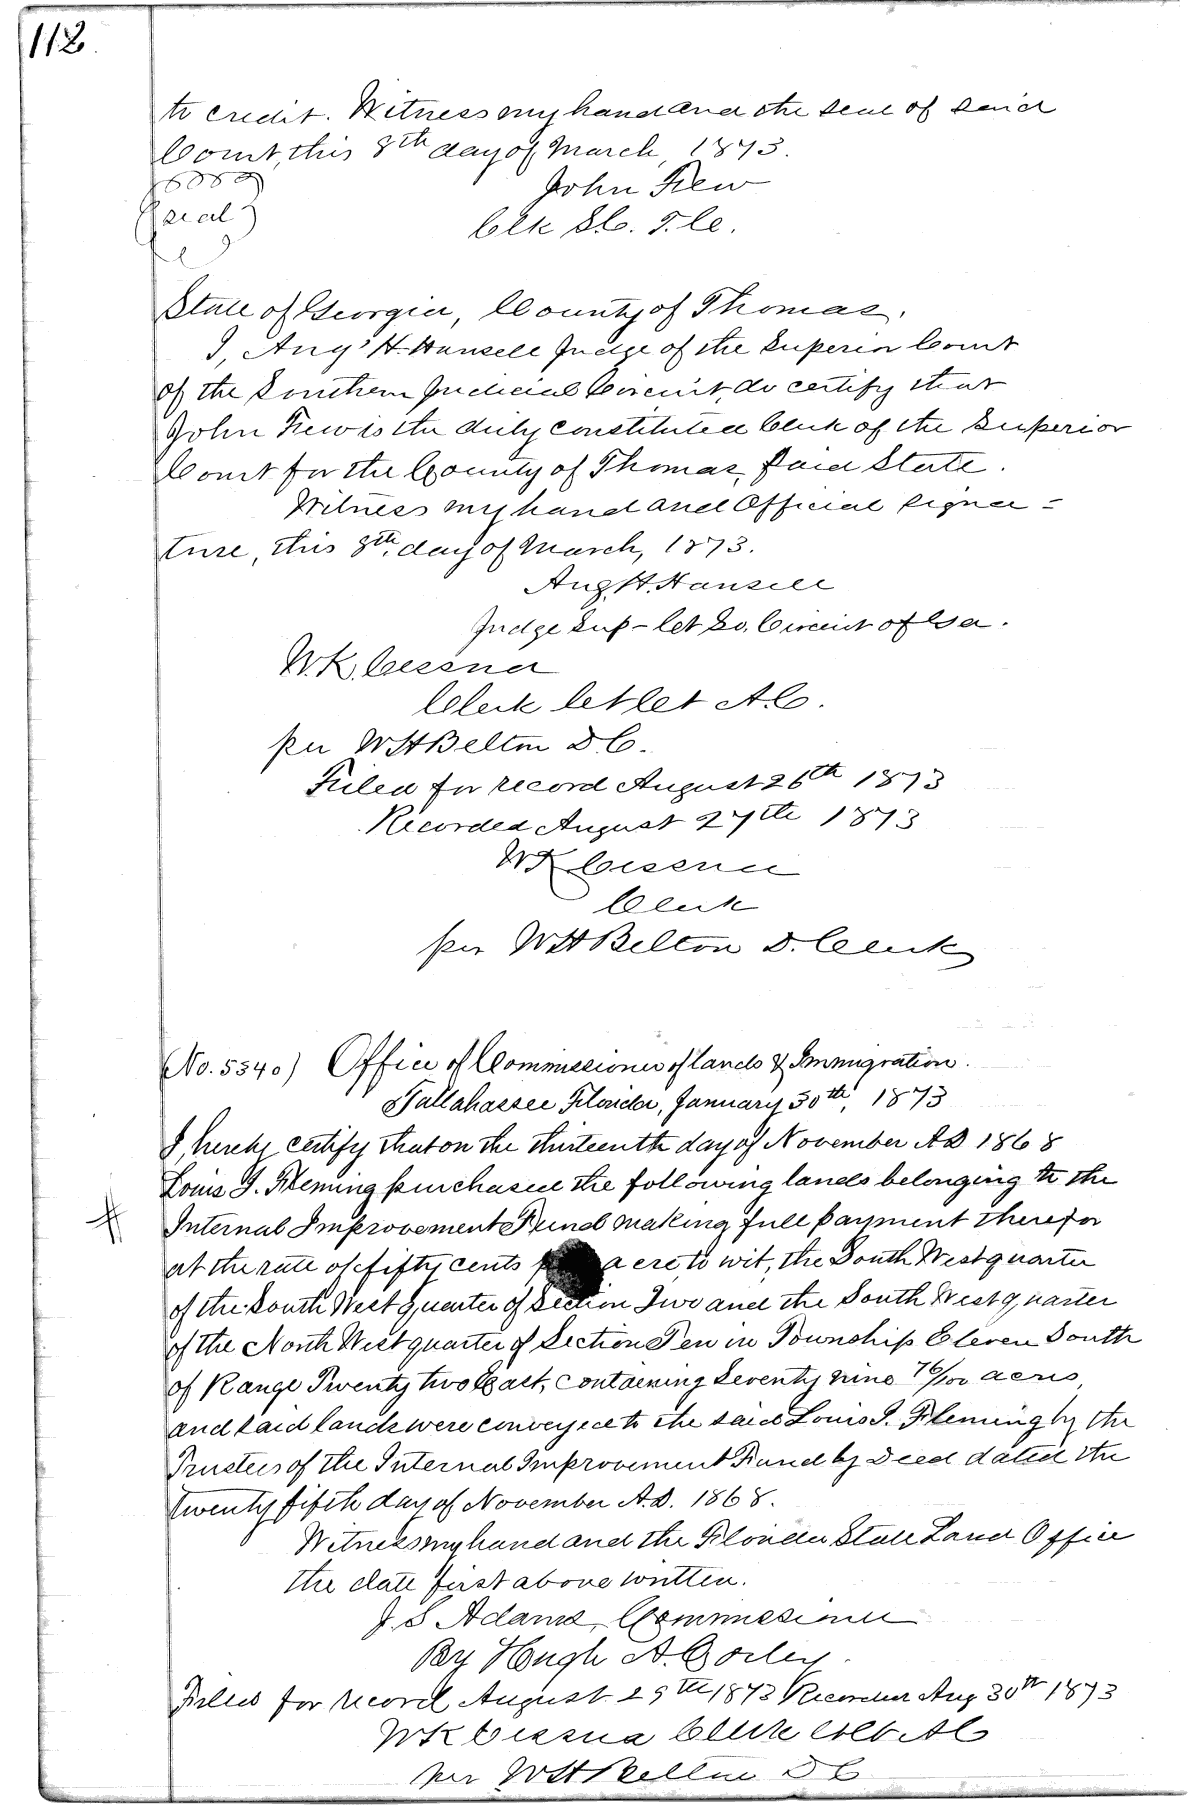 112.
to credit. Witness my hand and the seal of said
Court, this 8th day of March, 1873.
John Few
{seal}
Clk S.C. T.Co.
State of Georgia, County of Thomas.
I, Augs H. Hansell Judge of the Superior Court
of the Southern Judicial Circuit, do certify that
John Few is the duly constituted Clerk of the Superior
Court for the County of Thomas, said State.
Witness my hand and Official signa-
ture, this 8th day of March, 1873.
Aug. H. Hansell
Judge Sup- Ct So. Circuit of Ga.
W.K. Cessna
Clerk Ct Ct A.C.
per W H Belton D.C.
Filed for record August 26th 1873
Recorded August 27th 1873
W K Cessna
Clerk
per W H Belton D. Clerk
(No. 5340) Office of Commissioner of Lands & Immigration.
Tallahassee Florida, January 30th, 1873
I, hereby certify that on the thirteenth day of November AD 1868
Louis I. Fleming purchased the following lands belonging to the
# Internal Improvement Fund making full payment therefor
at the rate of fifty cents acre, to wit, the South West quarter
of the South West quarter of Section Two and the South West quarter
of the North West quarter of Section Ten in Township Eleven South
of Range Twenty two East, containing Seventy nine 76/100 acres,
and said lands were conveyed to the said Louis I. Fleming by the
Trustees of the Internal Improvement Fund by Deed dated the
twenty fifth day of November A.D. 1868.
Witness my hand and the Florida State Land Office
the date first above written.
J. S Adams, Commissioner
By Hugh A. Corley.
Filed for record August 29th 1873 Recorded Aug 30th 1873
W K Cessna Clerk Ct AC
per W H Belton D C